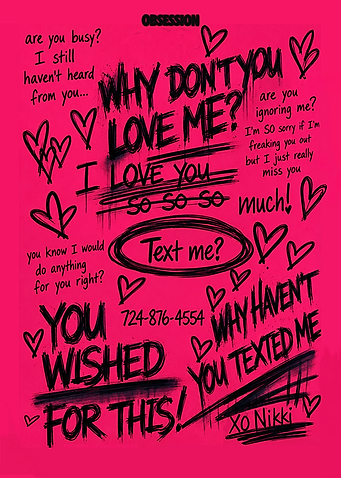 OBSESSION
are you busy?
I still
haven't heard
from you...
WHY DON'T YOU
LOVE ME?
are you
ignoring me?
I'm SO sorry if I'm
freaking you out
but I just really
miss you
I LOVE YOU
SO SO SO
much!
you know I would
do anything
for you right?
Text me?
724-876-4554
YOU
WISHED
FOR THIS!
WHY HAVEN'T
YOU TEXTED ME
!!
XO Nikki